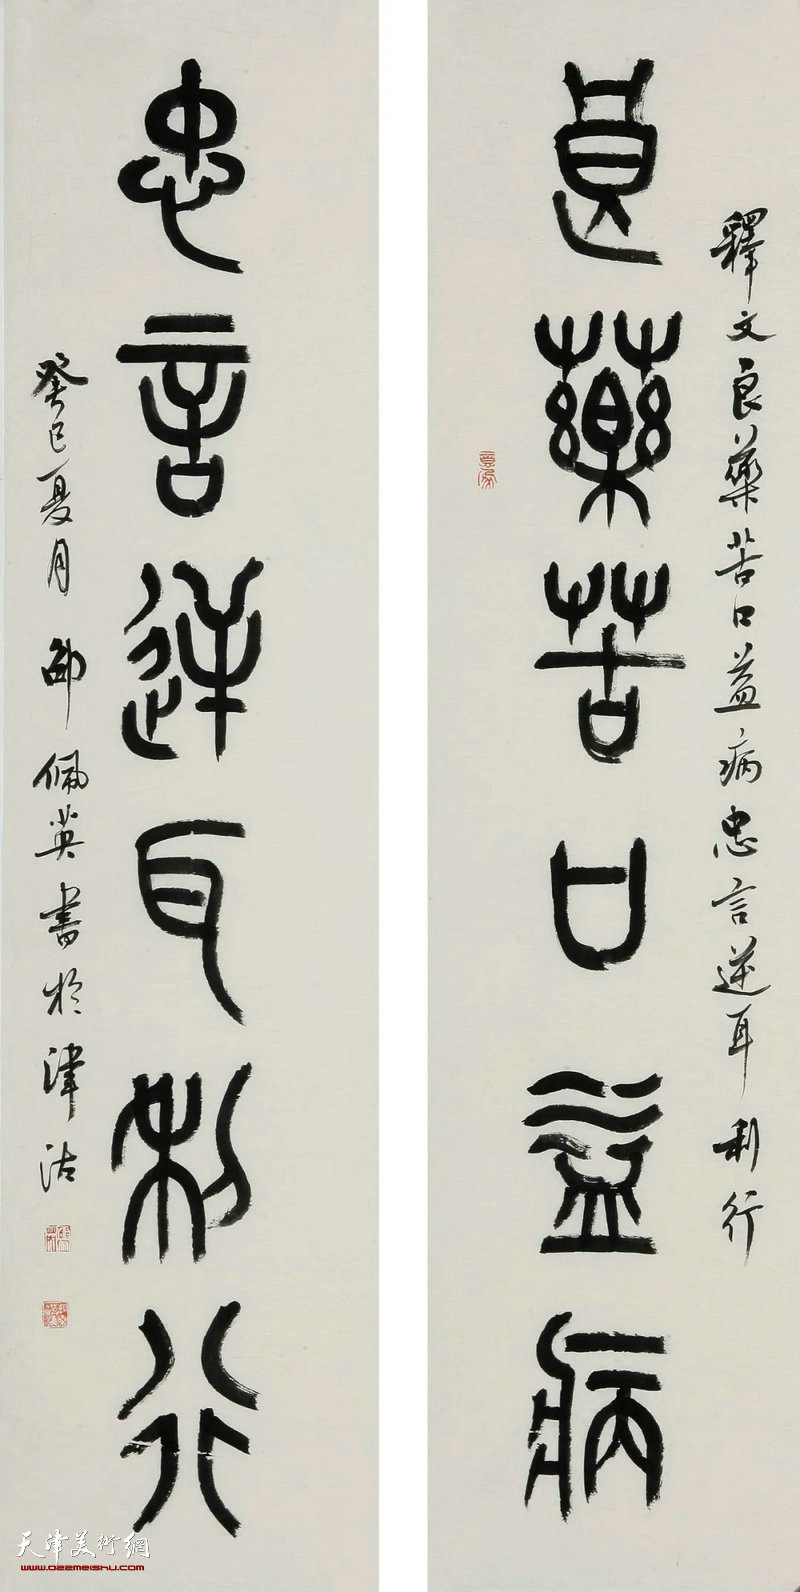 釋文良藥苦口益病忠言逆耳利行
良藥苦口益病
忠言逆耳利行
癸巳夏月邵佩英書於津沽
天津美術網
www.022meishu.com